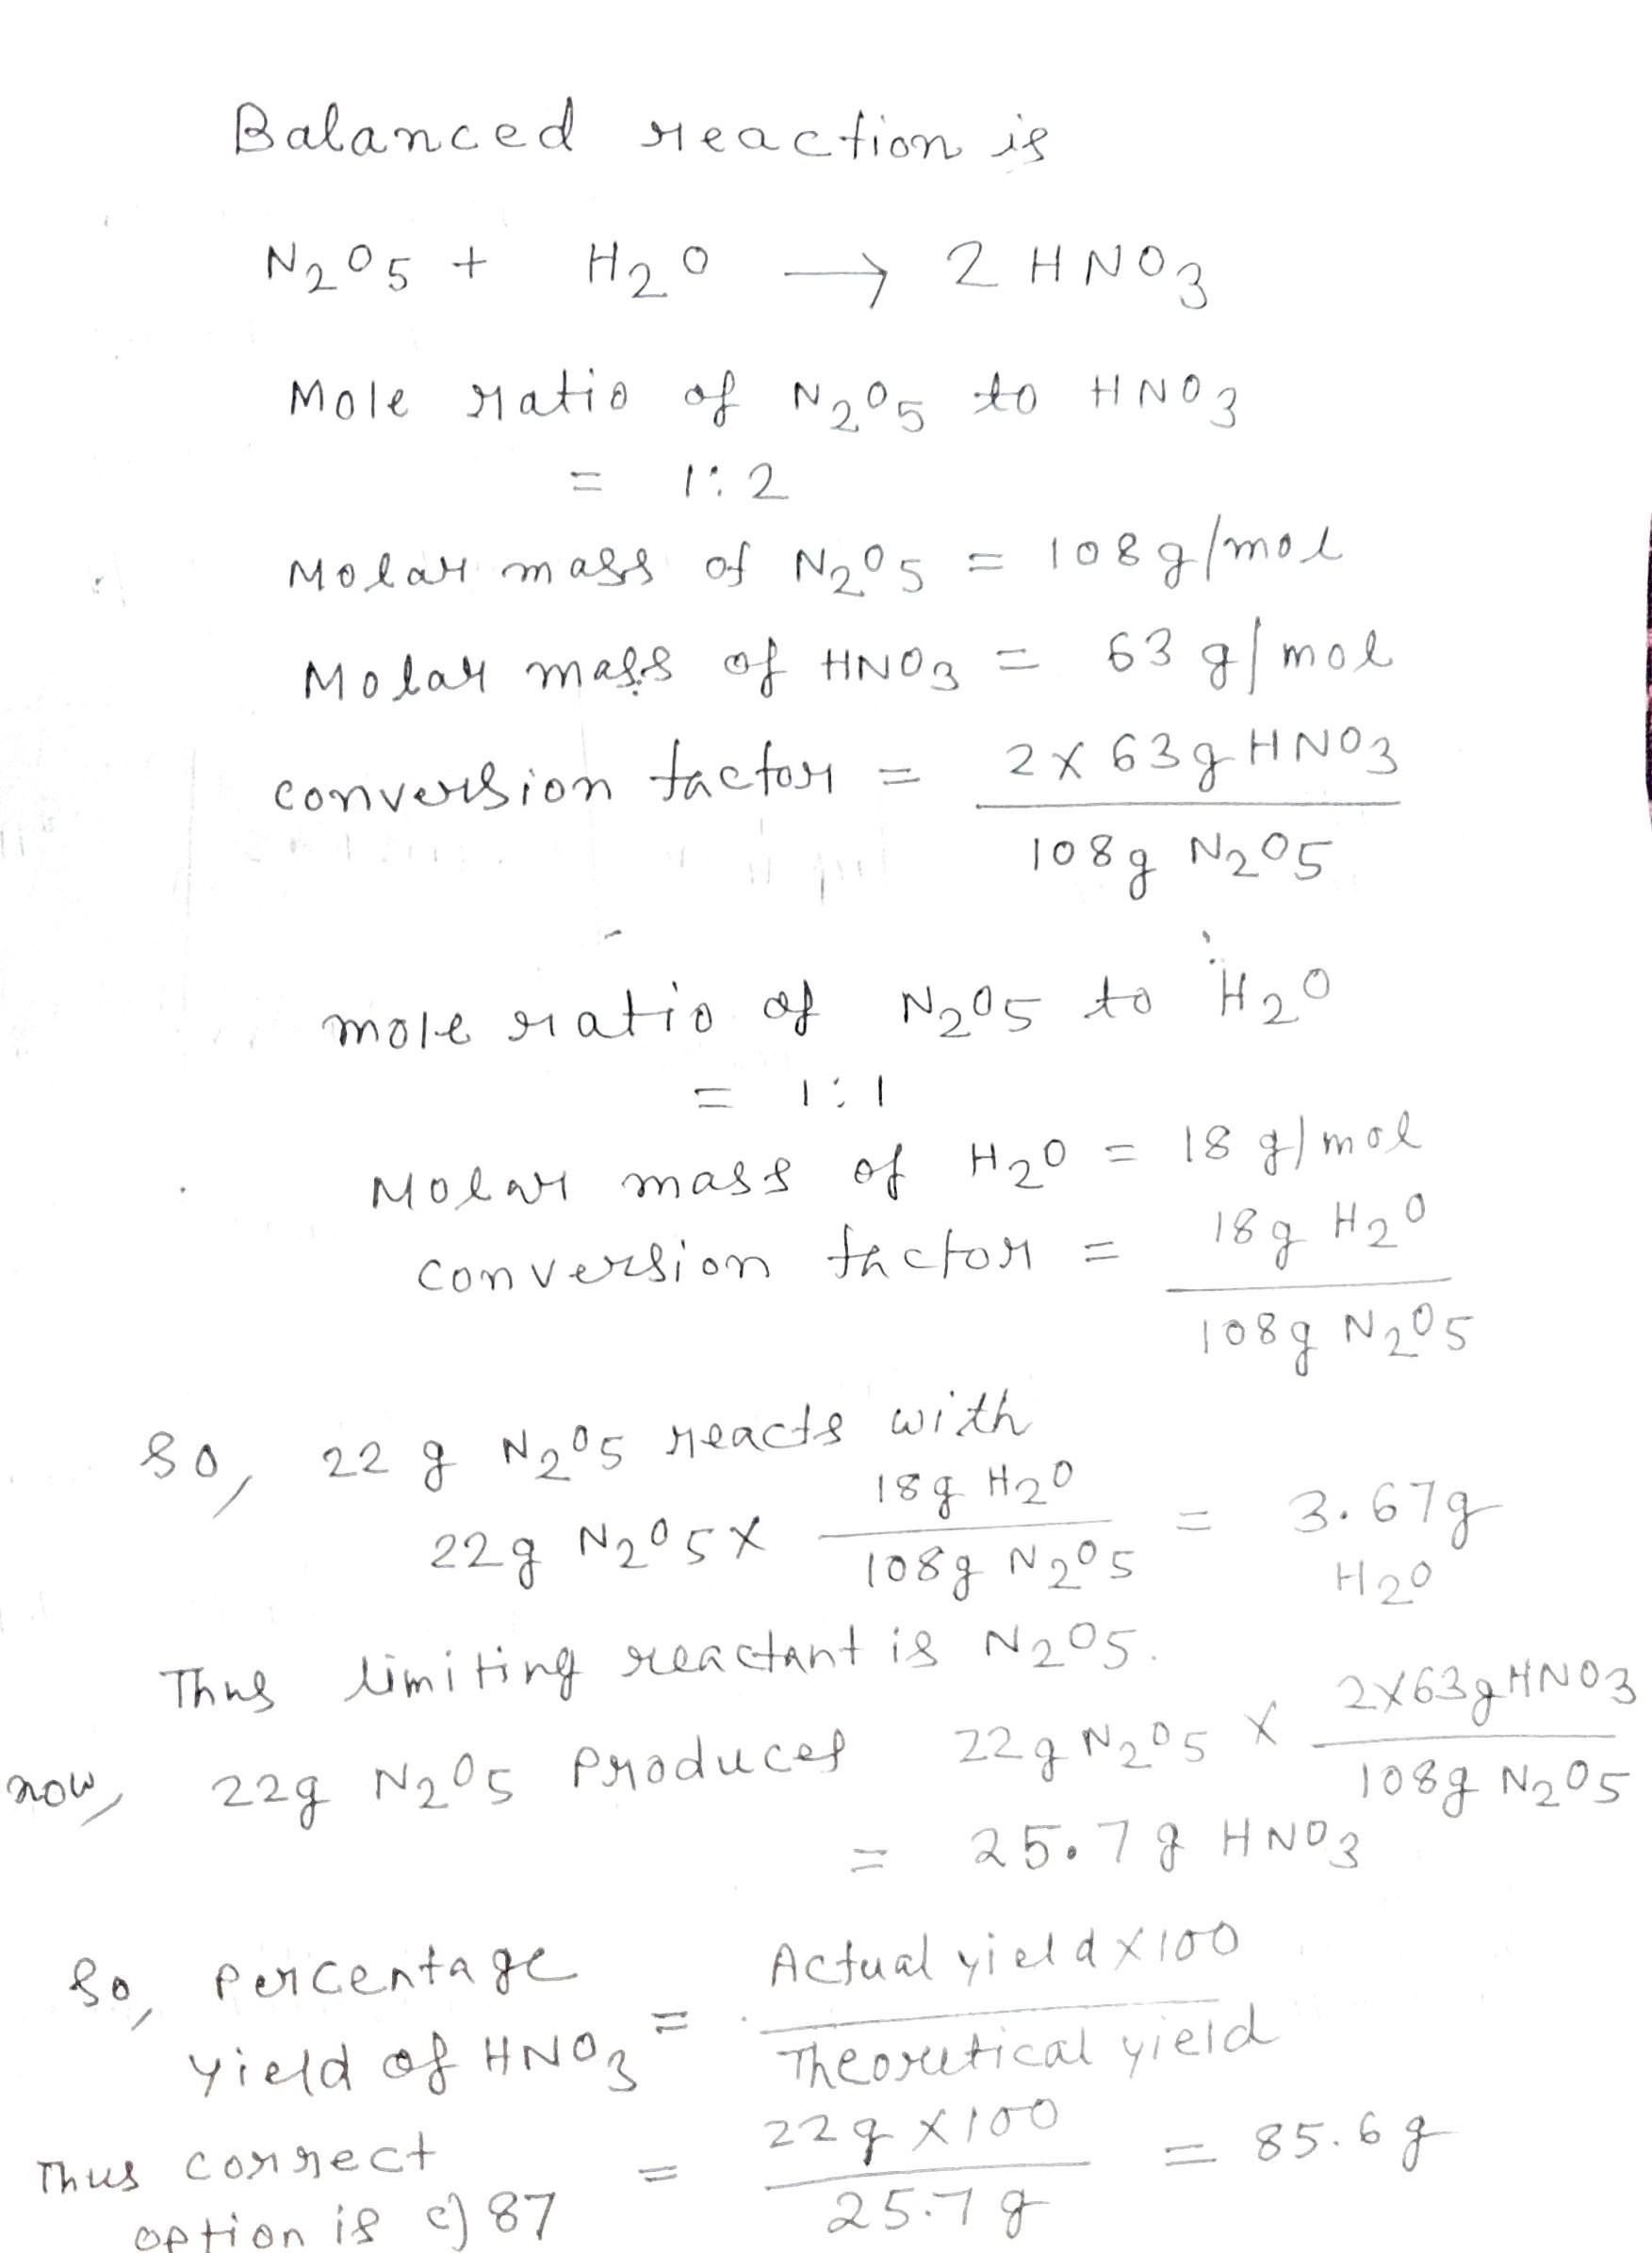 Balanced reaction is
N2O5 + H2O → 2 HNO3
Mole ratio of N2O5 to HNO3
= 1:2
Molar mass of N2O5 = 108g/mol
Molar mass of HNO3 = 63 g/mol
conversion factor = 2×63g HNO3
108g N2O5
mole ratio of N2O5 to H2O
= 1:1
Molar mass of H2O = 18 g/mol
conversion factor = 18g H2O
108g N2O5
So, 22 g N2O5 reacts with
22g N2O5 × 18g H2O / 108g N2O5 = 3.67g H2O
Thus limiting reactant is N2O5.
now, 22g N2O5 Produces 22g N2O5 × 2×63g HNO3 / 108g N2O5
= 25.7g HNO3
So, Percentage yield of HNO3 = Actual yield×100 / Theoretical yield
= 22g×100 / 25.7g = 85.6g
Thus correct
option is c) 87